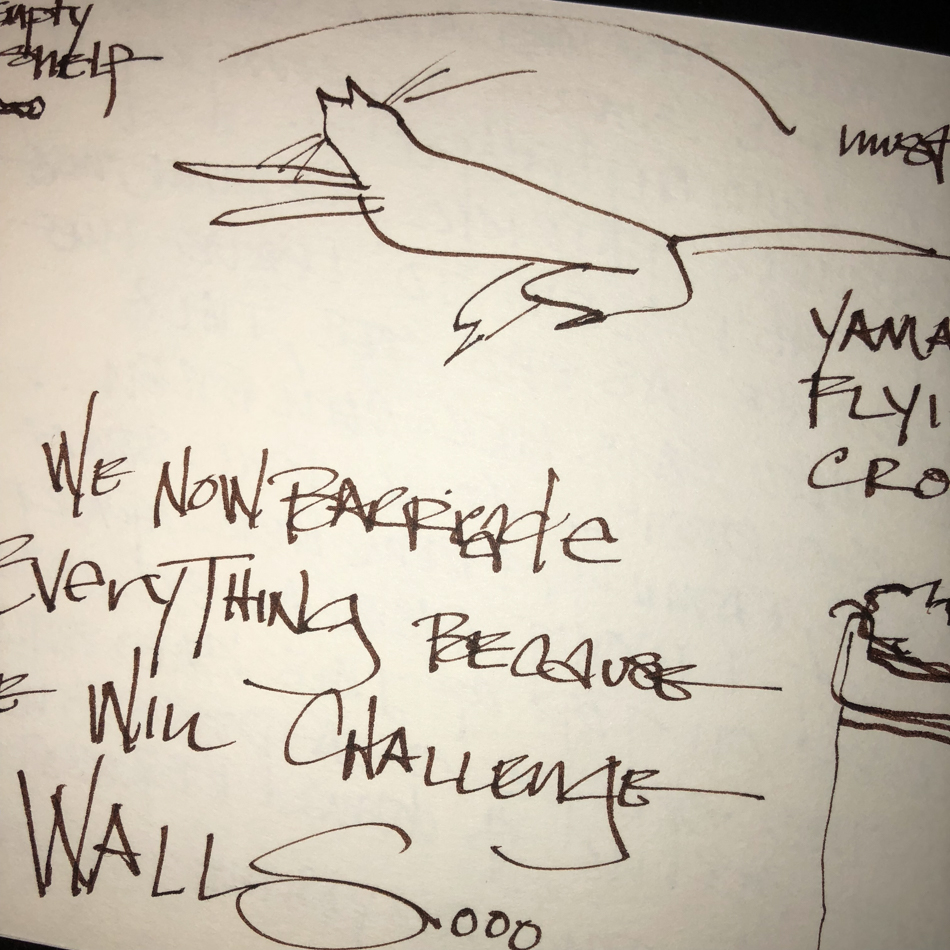 SHELF
must
YAMA
FLYI
CRO
WE NOW BARRicade
EVeryTHING BECAUSE
E WILL CHALLENGE
WALLS...